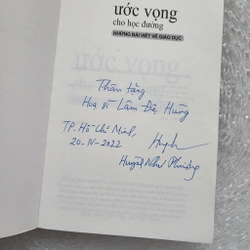 ước vọng
cho học đường
NHỮNG BÀI VIẾT VỀ GIÁO DỤC
Thân tặng
Hoạ sĩ Lâm Đệ Hùng
TP. Hồ Chí Minh,
20-IV-2022
Huỳnh Như Phương